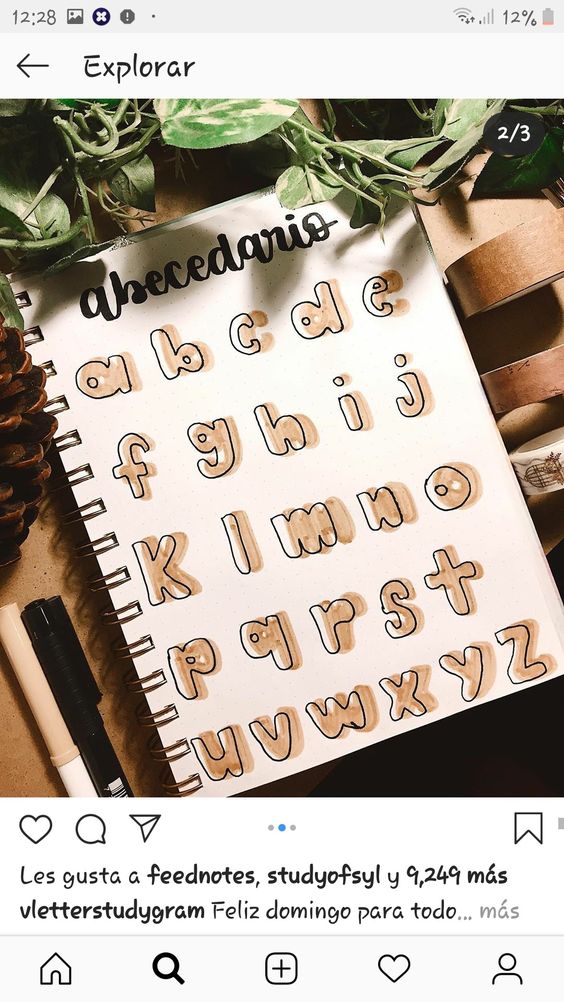 12:28 12%
Explorar
2/3
abecedario
a b c d e
f g h i j
k l m n o
p q r s t
u v w x y z
Les gusta a feednotes, studyofsyl y 9,249 más
vletterstudygram Feliz domingo para todo... más